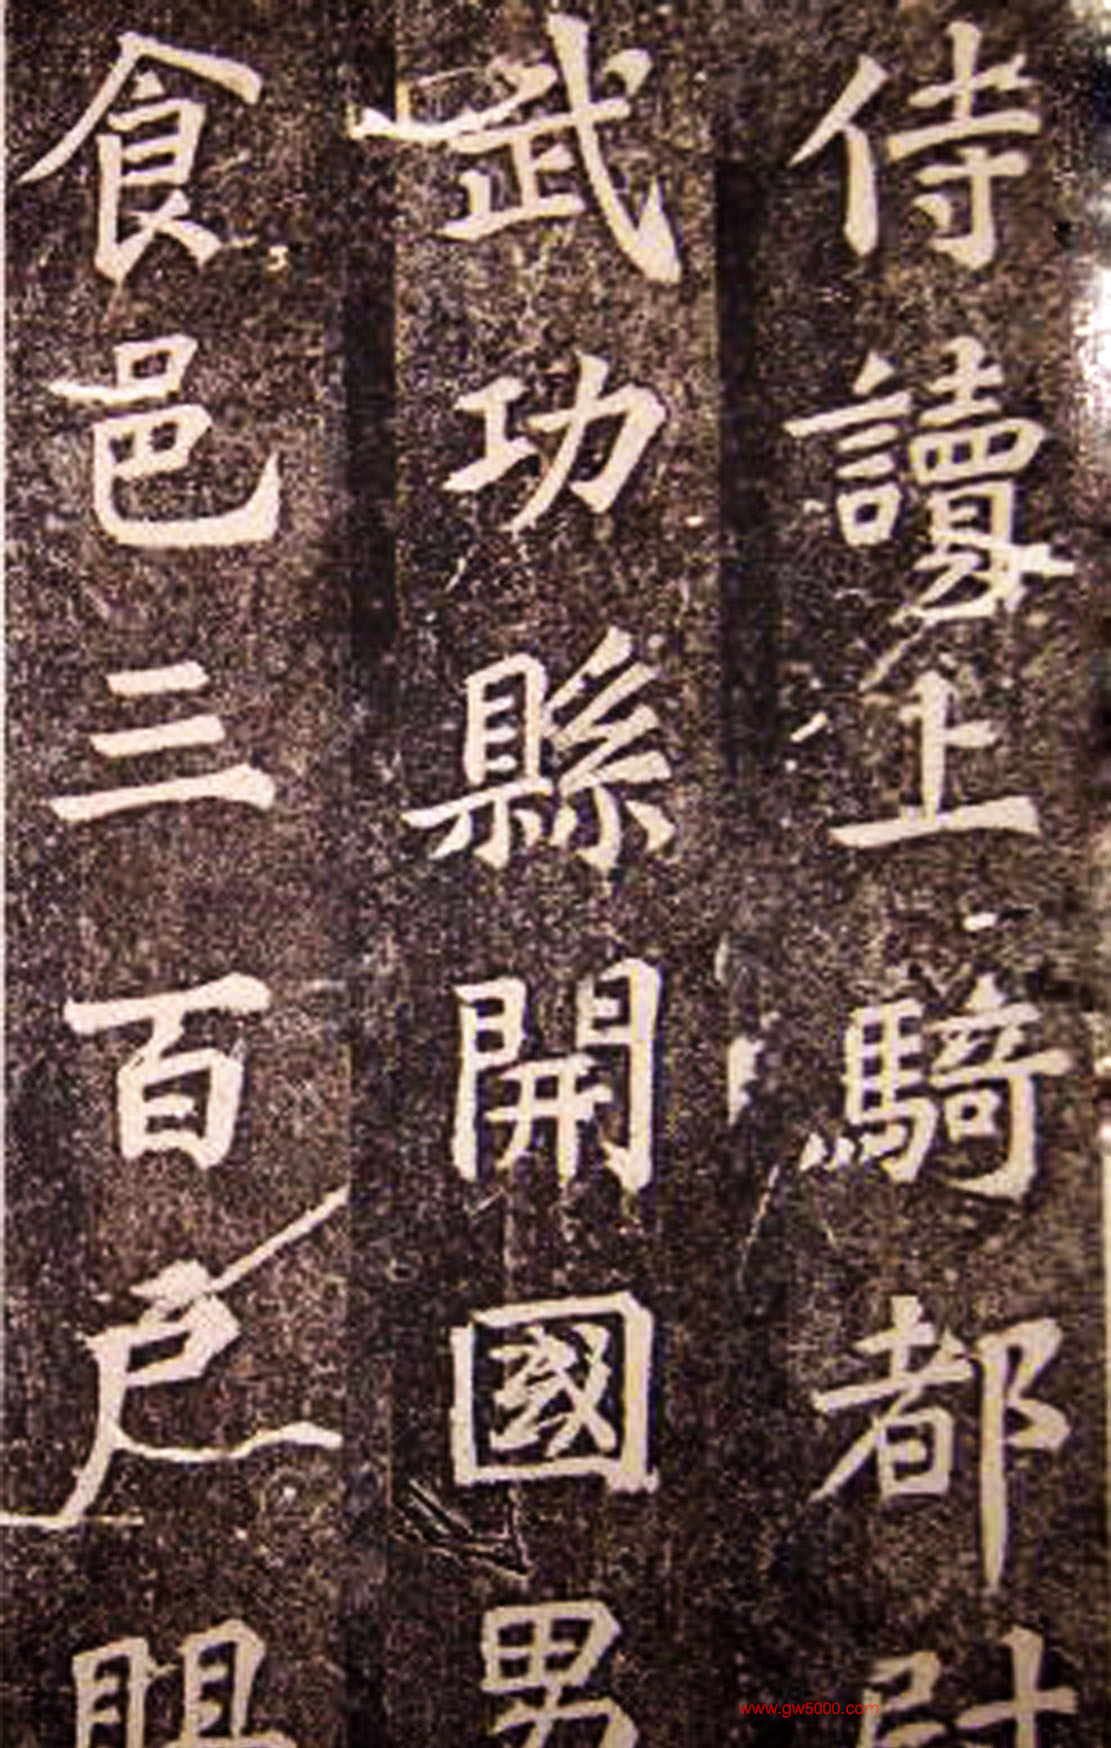 侍讀上騎都尉
武功縣開國男
食邑三百戶賜
www.gw5000.com